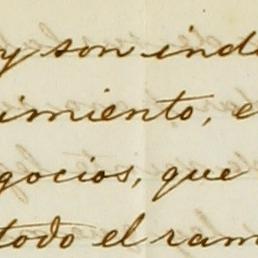 y son indi
imiento, e
gocios, que
todo el ram